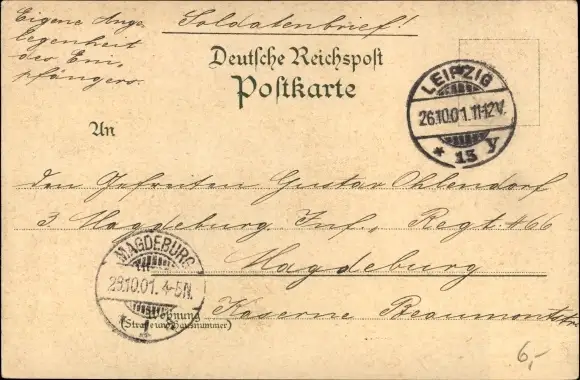 Eigene Ange-
legenheit
des Em-
pfängers.
Soldatenbrief!
Deutsche Reichspost
Postkarte
LEIPZIG
26.10.01. 11-12V.
* 13 y
An
den Gefreiten Gustav Ohlendorf
3. Magdeburg. Inf., Regt. #66
Magdeburg
MAGDEBURG
28.10.01. 4-5N.
* 1
Kaserne Beaumontstr
Wohnung
(Straße und Hausnummer)
6,-